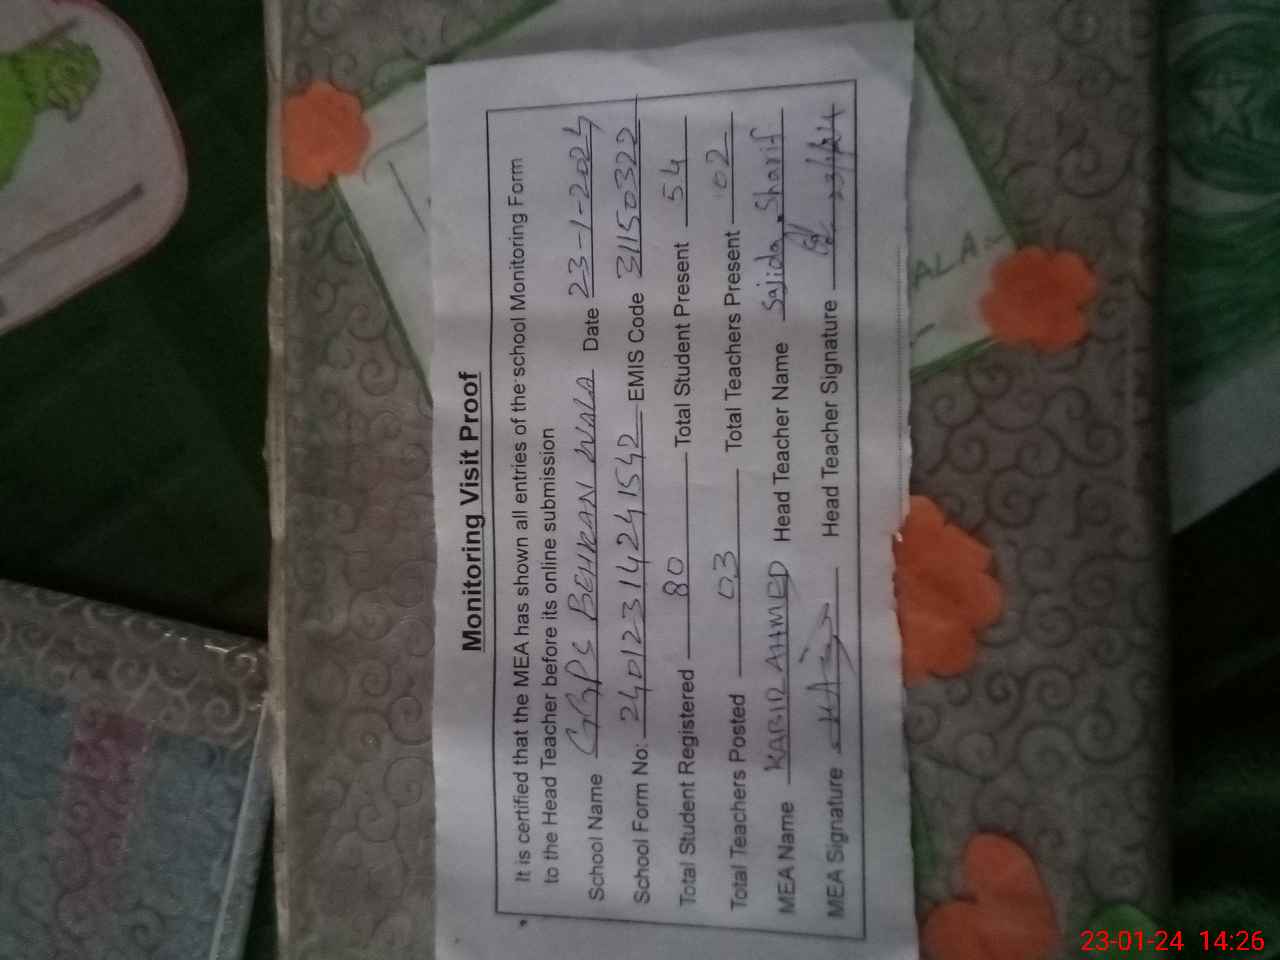 Monitoring Visit Proof
It is certified that the MEA has shown all entries of the school Monitoring Form
to the Head Teacher before its online submission
School Name GGPS BEHKAN WALA Date 23-1-2024
School Form No: 24012314241542 EMIS Code 31150322
Total Student Registered 80 Total Student Present 54
Total Teachers Posted 03 Total Teachers Present 02
MEA Name KABIR AHMED Head Teacher Name Sajida Sharif
MEA Signature Head Teacher Signature 23/1/24
ALA
23-01-24 14:26